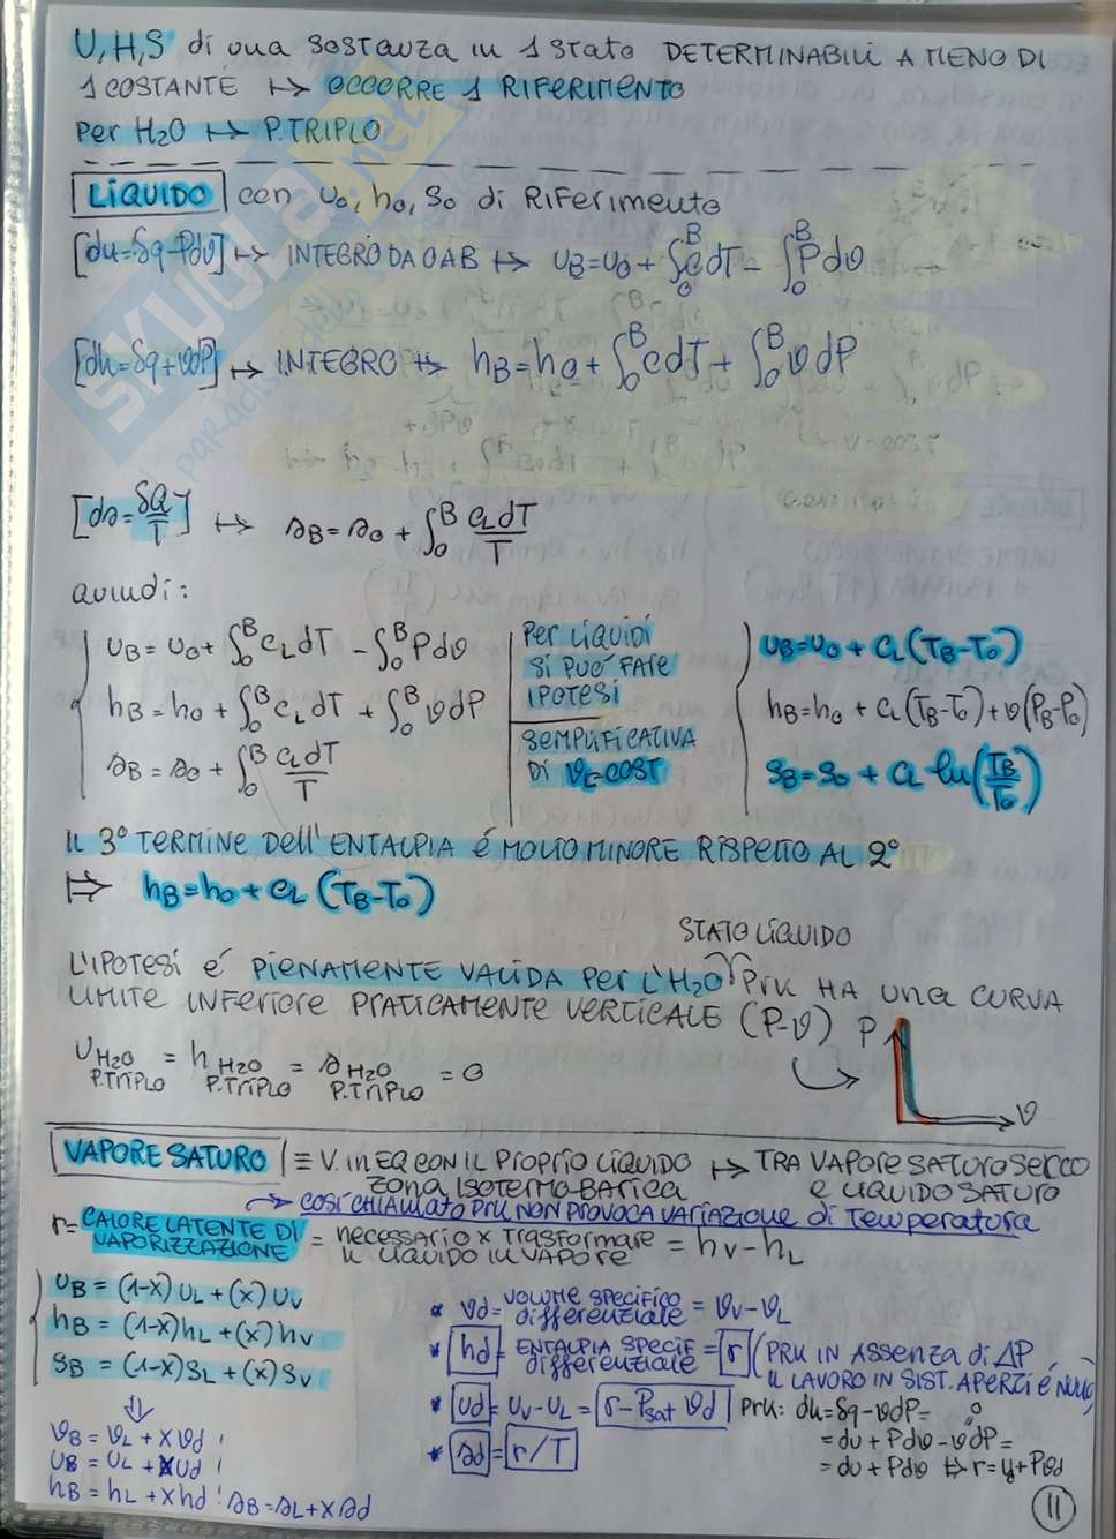 U,H,S di una sostanza in 1 stato DETERMINABILI A MENO DI
1 COSTANTE ↦ OCCORRE 1 RIFERIMENTO
Per H2O ↦ P.TRIPLO
LIQUIDO con u0, h0, s0 di RIFerimento
[du=δq-Pdv] ↦ INTEGRO DA 0 A B ↦ uB=u0+∫0^B cdT - ∫0^B Pdv
[dh=δq+vdP] ↦ INTEGRO ↦ hB=h0+∫0^B cdT+∫0^B vdP
[ds=δQ/T] ↦ sB=s0+∫0^B cLdT/T
quindi:
uB=u0+∫0^B cLdT -∫0^B Pdv
hB=h0+∫0^B cLdT +∫0^B vdP
sB=s0+∫0^B cLdT/T
Per LIQUIDI
SI PUO' FARE
IPOTESI
SEMPLIFICATIVA
DI vL=COST
uB=u0+cL(TB-T0)
hB=h0+cL(TB-T0)+v(PB-P0)
SB=S0+cL ln(TB/T0)
IL 3° TERMINE Dell'ENTALPIA é MOLTO MINORE RISPETTO AL 2°
⇒ hB=h0+cL(TB-T0)
STATO LIQUIDO
L'IPOTESI é PIENAMENTE VALIDA Per L'H2O PK HA una CURVA
LIMITE INFERIORE PRATICAMENTE VERTICALE (P-v)
P
v
uH2O P.TRIPLO = hH2O P.TRIPLO = sH2O P.TRIPLO = 0
VAPORE SATURO ≡ V. in EQ CON IL PROPRIO LIQUIDO ↦ TRA VAPORE SATURO SECCO
ZONA ISOTERMO-BARICA e LIQUIDO SATURO
→ COSÌ CHIAMATO PK NON PROVOCA VARIAZIONE di Temperatura
r= CALORE LATENTE DI VAPORIZZAZIONE = necessario x TRASFORMARE IL LIQUIDO IN VAPORE = hV-hL
UB=(1-X)UL+(X)UV
hB=(1-X)hL+(X)hV
SB=(1-X)SL+(X)SV
⇓
vB=vL+Xvd
uB=uL+Xud
hB=hL+Xhd sB=sL+Xsd
* vd= VOLUME SPECIFICO differenziale = vV-vL
* hd= ENTALPIA SPECIF differenziale = r (PK IN ASSENZA di ΔP
IL LAVORO IN SIST. APERTI é NULLO)
* ud= uV-uL= r-Psat vd PK: dh=δq-vdP=
=du+Pdv-vdP=
* sd=r/T
=du+Pdv ↦ r=u+Pvd
11